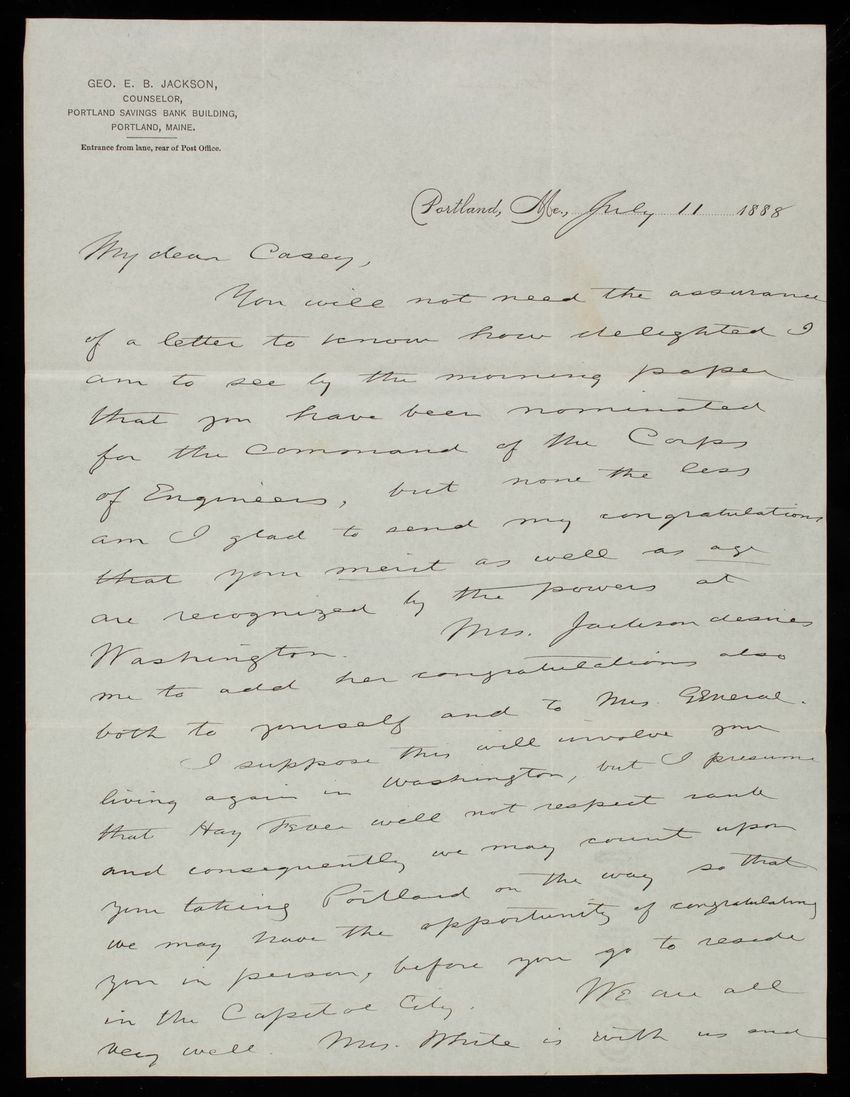 GEO. E. B. JACKSON,
COUNSELOR,
PORTLAND SAVINGS BANK BUILDING,
PORTLAND, MAINE.
Entrance from lane, rear of Post Office.
Portland, Me., July 11 1888
My dear Casey,
You will not need the assurance
of a letter to know how delighted I
am to see by the morning paper
that you have been nominated
for the command of the Corps
of Engineers, but none the less
am I glad to send my congratulations
that your merit as well as age
are recognized by the powers at
Washington. Mrs. Jackson desires
me to add her congratulations also
both to yourself and to Mrs. General.
I suppose this will involve your
living again in Washington, but I presume
that Hay Fever will not respect rank
and consequently we may count upon
your taking Portland on the way so that
we may have the opportunity of congratulating
you in person, before you go to reside
in the Capitol City. We are all
very well. Mrs. White is with us and